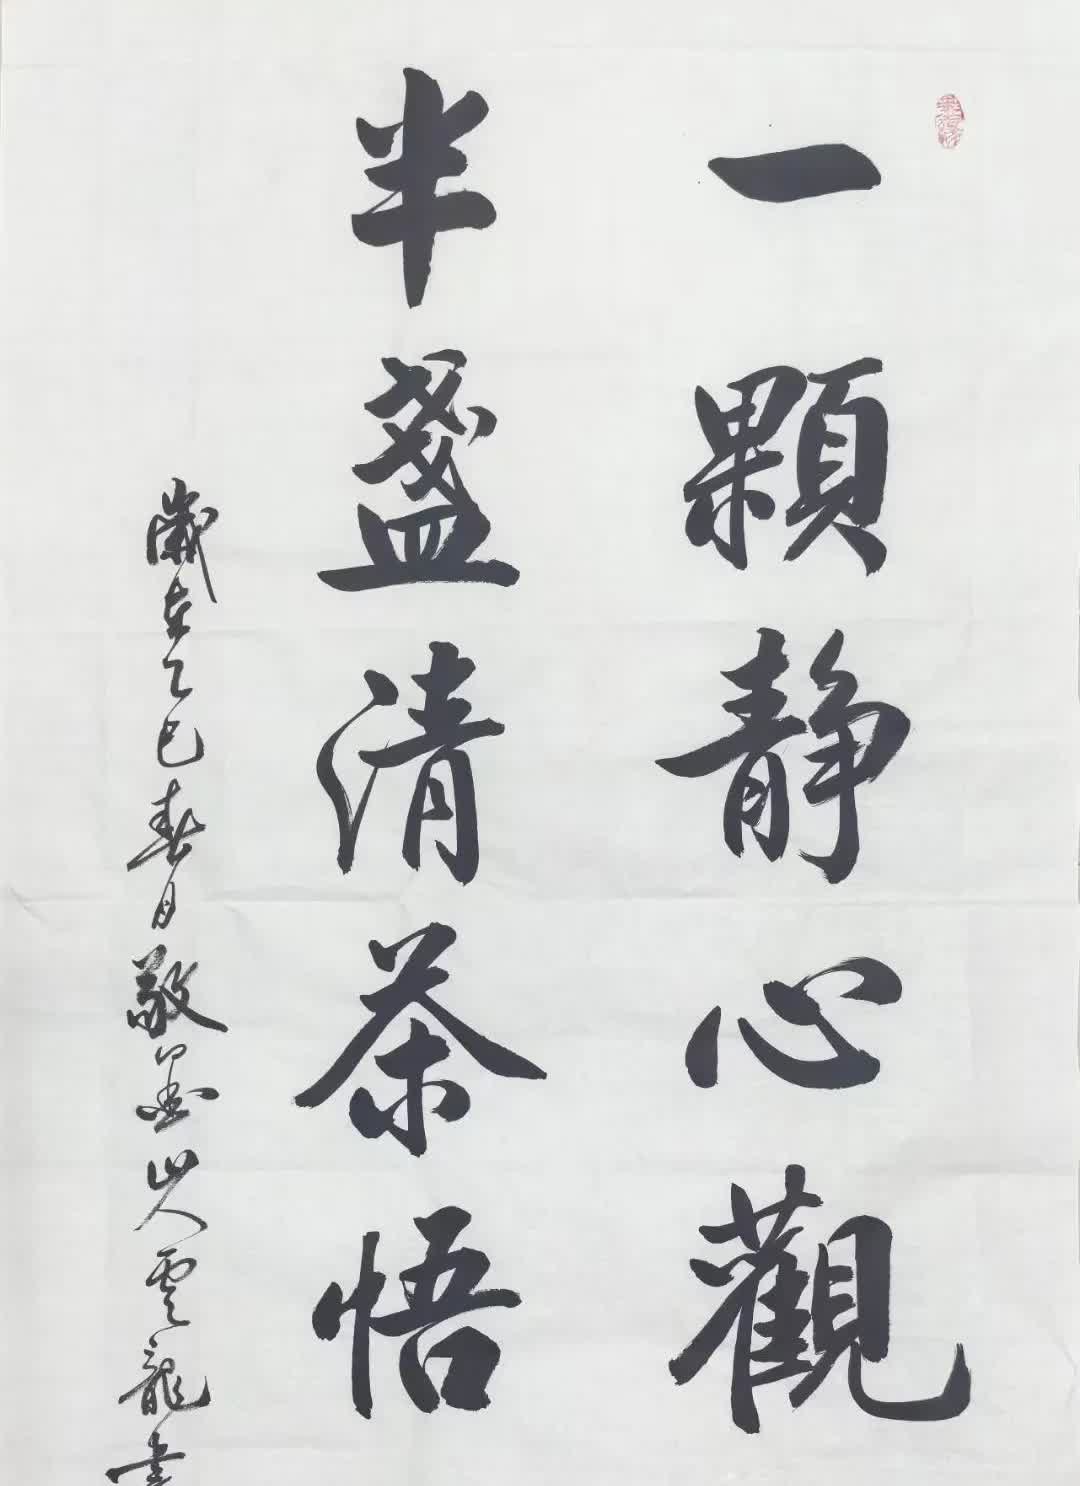 一顆靜心觀
半盞清茶悟
歲在乙巳春月敬墨山人雲龍書